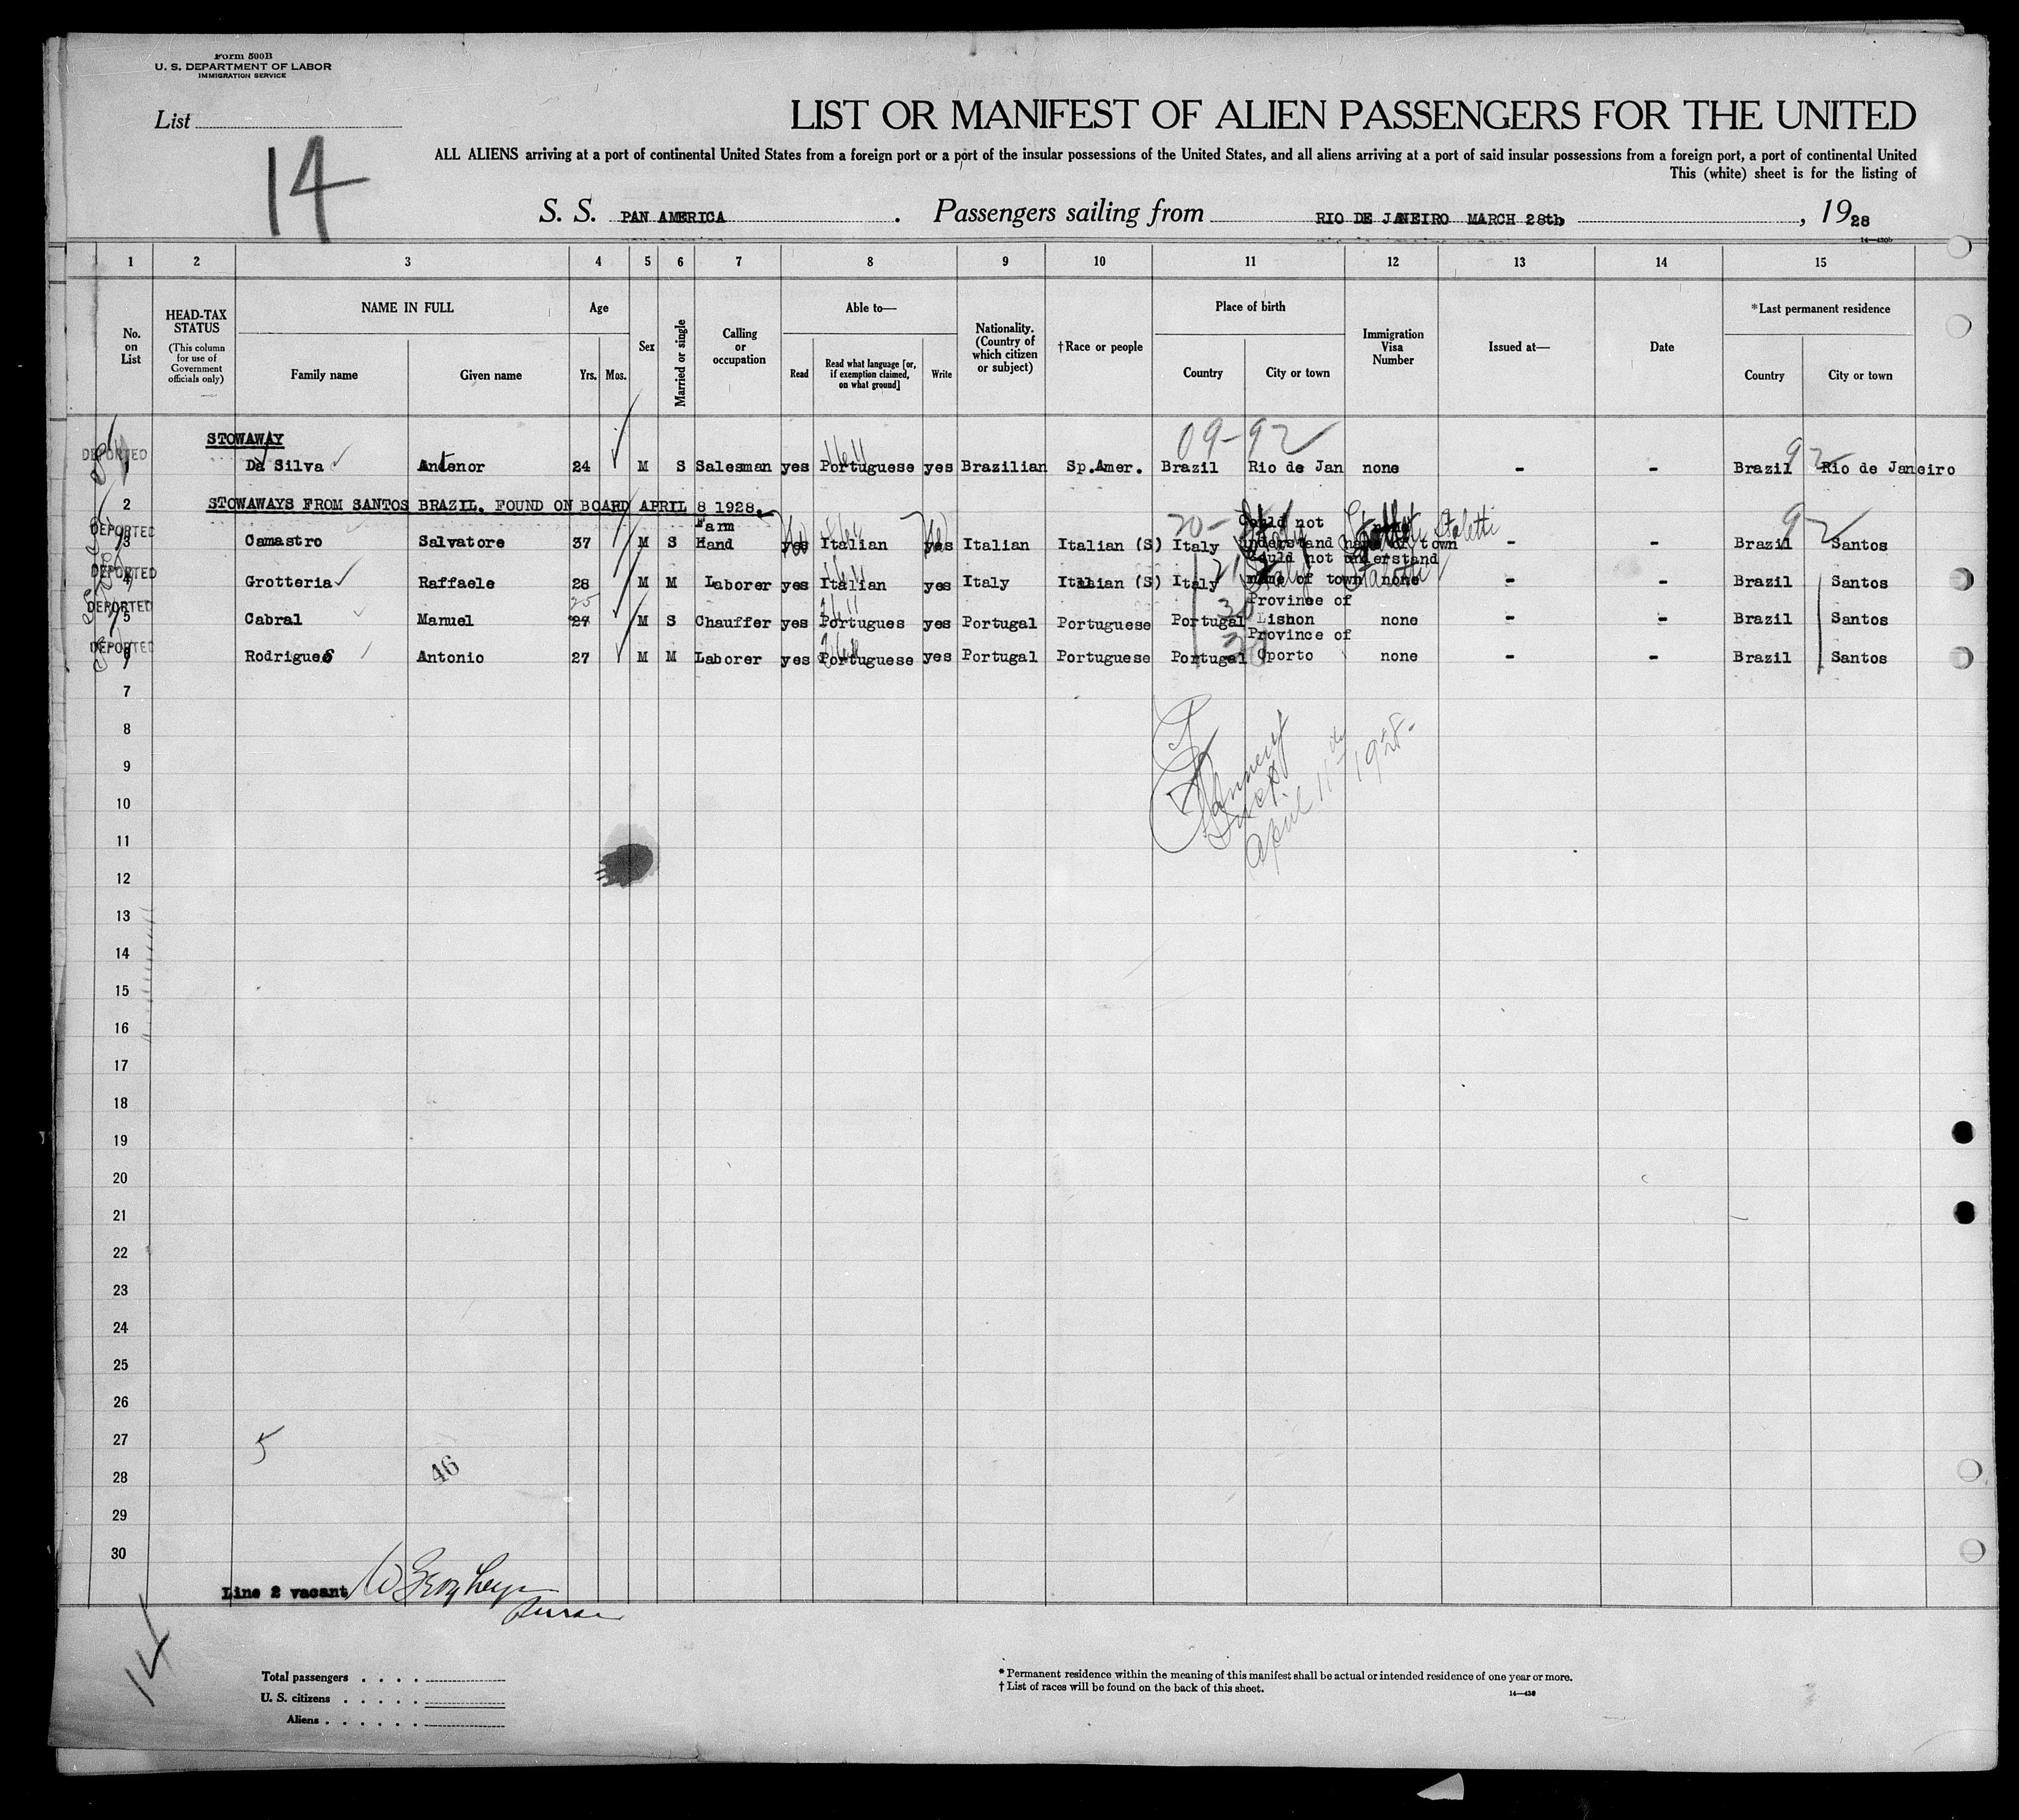 Form 500B
U. S. DEPARTMENT OF LABOR
IMMIGRATION SERVICE
List
14
LIST OR MANIFEST OF ALIEN PASSENGERS FOR THE UNITED
ALL ALIENS arriving at a port of continental United States from a foreign port or a port of the insular possessions of the United States, and all aliens arriving at a port of said insular possessions from a foreign port, a port of continental United
This (white) sheet is for the listing of
S. S. PAN AMERICA . Passengers sailing from RIO DE JANEIRO MARCH 28th , 1928
14—430b
1 2 3 4 5 6 7 8 9 10 11 12 13 14 15
No. on List
HEAD-TAX STATUS
(This column for use of Government officials only)
NAME IN FULL
Family name Given name
Age
Yrs. Mos.
Sex
Married or single
Calling or occupation
Able to—
Read Read what language [or, if exemption claimed, on what ground] Write
Nationality. (Country of which citizen or subject)
†Race or people
Place of birth
Country City or town
Immigration Visa Number
Issued at—
Date
*Last permanent residence
Country City or town
STOWAWAY 09-92
DEPORTED 1 Da Silva Antenor 24 M S Salesman yes Portuguese yes Brazilian Sp.Amer. Brazil Rio de Jan none - - Brazil Rio de Janeiro
92
2 STOWAWAYS FROM SANTOS BRAZIL. FOUND ON BOARD APRIL 8 1928.
DEPORTED 3 Camastro Salvatore 37 M S Farm Hand yes Italian yes Italian Italian (S) Italy Could not understand name of town none Staletti - - Brazil Santos
20- 92
DEPORTED 4 Grotteria Raffaele 28 M M Laborer yes Italian yes Italy Italian (S) Italy Could not understand name of town none - - Brazil Santos
25
DEPORTED 5 Cabral Manuel 27 M S Chauffer yes Portugues yes Portugal Portuguese Portugal Province of Lisbon none - - Brazil Santos
DEPORTED 6 Rodrigues Antonio 27 M M Laborer yes Portuguese yes Portugal Portuguese Portugal Province of Oporto none - - Brazil Santos
7
8
9
April 11 1928.
10
11
12
13
14
15
16
17
18
19
20
21
22
23
24
25
26
27
5
46
28
29
30
Line 2 vacant
14
Total passengers . . . .
U. S. citizens . . . . .
Aliens . . . . . .
* Permanent residence within the meaning of this manifest shall be actual or intended residence of one year or more.
† List of races will be found on the back of this sheet.
14—430